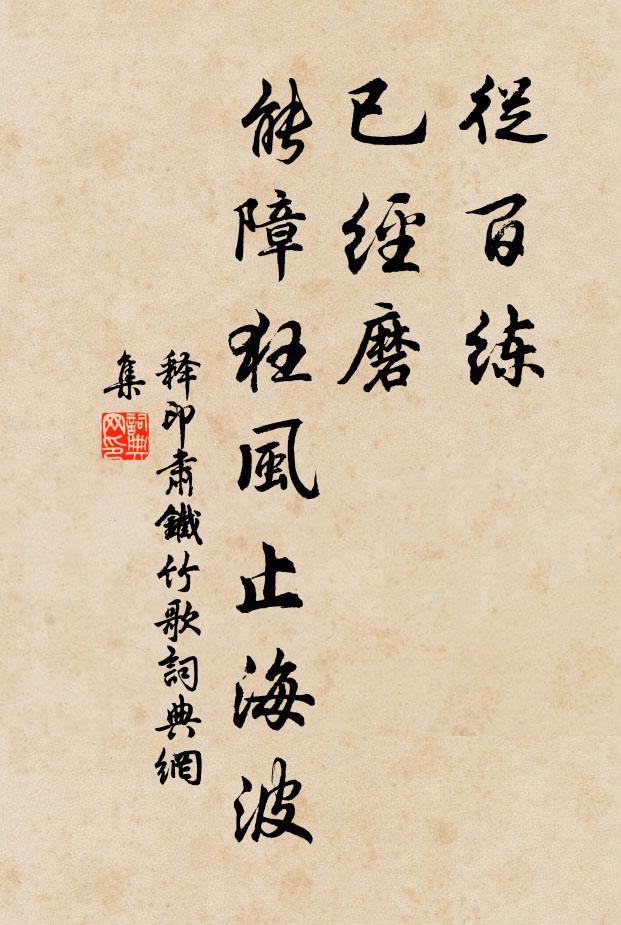 從百练
已經磨
能障狂風止海波
释印肃鐵竹歌詞典網
集
詞典
网印